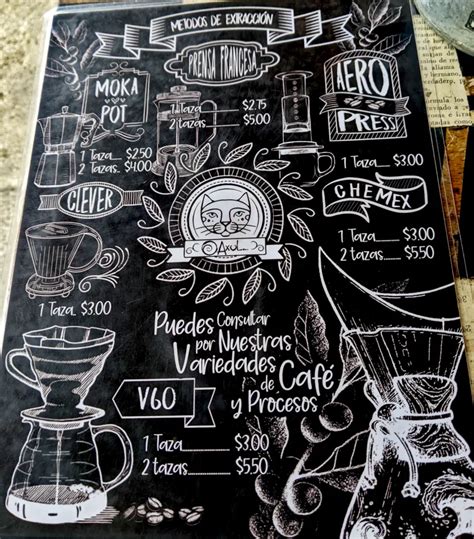 METODOS DE EXTRACCIÓN
PRENSA FRANCESA
1 taza $2.75
2 tazas $5.00
MOKA
POT
1 Taza $2.50
2 Tazas $4.00
AERO
PRESS
1 Taza $3.00
CLEVER
1 Taza $3.00
CHEMEX
1 Taza $3.00
2 tazas $5.50
Axul
Puedes Consultar
por Nuestras
Variedades
de Café
y Procesos
V60
1 Taza $3.00
2 tazas $5.50